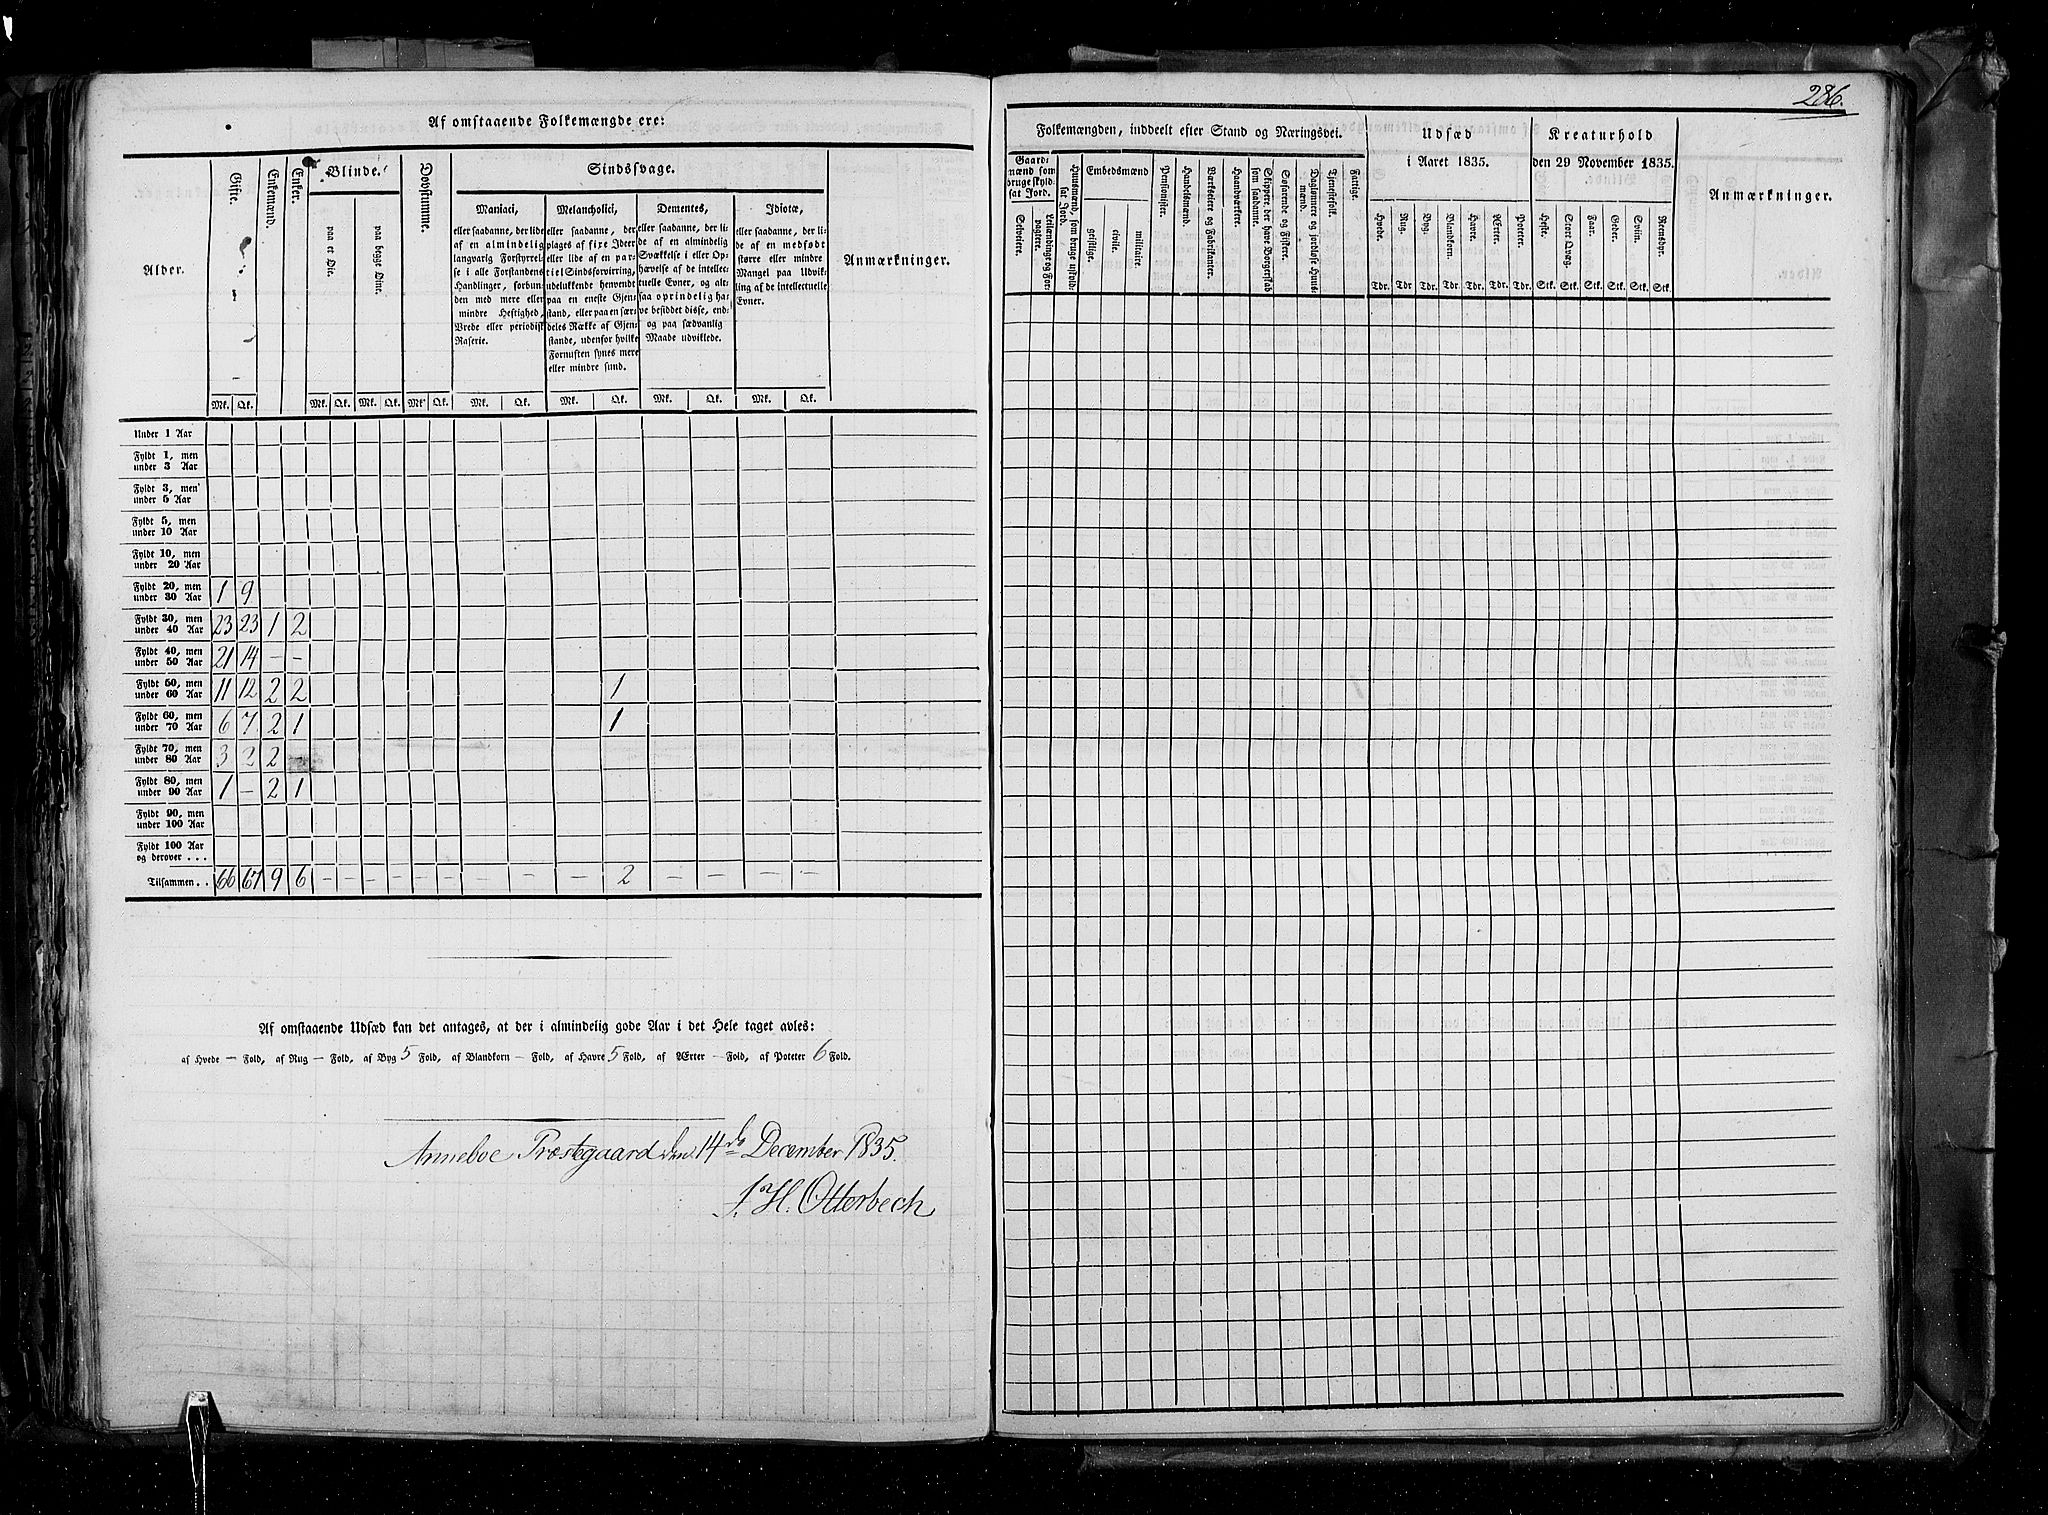 Af omstaaende Folkemængde ere:
Alder.
Gifte.
Enkemænd.
Enker.
Blinde.
paa et Øie.
paa begge Øine.
Døvstumme.
Sindssvage.
Maniaci,
eller saadanne, der lide
af en almindelig
langvarig Forstyrrel-
se i alle Forstandens
Handlinger, forbun-
den med mere eller
mindre Heftighed,
Vrede eller periodisk
Raserie.
Melancholici,
eller saadanne, der
plages af fixe Ideer
eller lide af en par-
tiel Sindsforvirring,
udelukkende henvendt
paa en eneste Gjen-
stand, eller paa en sær-
deles Række af Gjen-
stande, udenfor hvilke
Fornuften synes mere
eller mindre sund.
Dementes,
eller saadanne, der li-
de af en almindelig
Svækkelse i eller Op-
hævelse af de intellec-
tuelle Evner, og alt-
saa oprindelig ha-
ve besiddet disse, end-
og paa sædvanlig
Maade udviklede.
Idiotæ,
eller saadanne, der li-
de af en medfødt
større eller mindre
Mangel paa Udvik-
ling af de intellectuelle
Evner.
Anmærkninger.
Mk. Qk. Mk. Qk. Mk. Qk. Mk. Qk. Mk. Qk. Mk. Qk. Mk. Qk. Mk. Qk.
Under 1 Aar
Fyldt 1, men
under 3 Aar
Fyldt 3, men
under 5 Aar
Fyldt 5, men
under 10 Aar
Fyldt 10, men
under 20 Aar
Fyldt 20, men
under 30 Aar 1 9
Fyldt 30, men
under 40 Aar 23 23 1 2
Fyldt 40, men
under 50 Aar 21 14 – –
Fyldt 50, men
under 60 Aar 11 12 2 2 1
Fyldt 60, men
under 70 Aar 6 7 2 1 1
Fyldt 70, men
under 80 Aar 3 2 2
Fyldt 80, men
under 90 Aar 1 – 2 1
Fyldt 90, men
under 100 Aar
Fyldt 100 Aar
og derover . . .
Tilsammen . . 66 67 9 6 – – – – – – – – – 2 – – – –
Af omstaaende Udsæd kan det antages, at der i almindelig gode Aar i det Hele taget avles:
af Hvede – Fold, af Rug – Fold, af Byg 5 Fold, af Blandkorn – Fold, af Havre 5 Fold, af Ærter – Fold, af Poteter 6 Fold.
Anneboe Præstegaard den 14de December 1835.
S. H. Otterbech
286.
Folkemængden, inddeelt efter Stand og Næringsvei.
Gaard-
mænd som
bruge skyld-
sat Jord.
Selveiere.
Leilændinge og For-
pagtere.
Huusmænd, som bruge uskyld-
sat Jord.
Embedsmænd
geistlige.
civile.
militaire.
Pensionister.
Handelsmænd.
Værkseiere og
Fabrikanter.
Haandværkere.
Skippere, der have Borgerskab
som saadanne.
Søfarende og
Fiskere.
Daglønnere og jordløse Huus-
mænd.
Tjenestefolk.
Fattige.
Udsæd
i Aaret 1835.
Hvede. Rug. Byg. Blandkorn. Havre. Ærter. Poteter.
Tdr. Tdr Tdr. Tdr. Tdr. Tdr. Tdr.
Kreaturhold
den 29 November 1835.
Heste. Stort Qvæg. Faar. Geder. Sviin. Reensdyr.
Stk. Stk. Stk. Stk. Stk. Stk.
Anmærkninger.